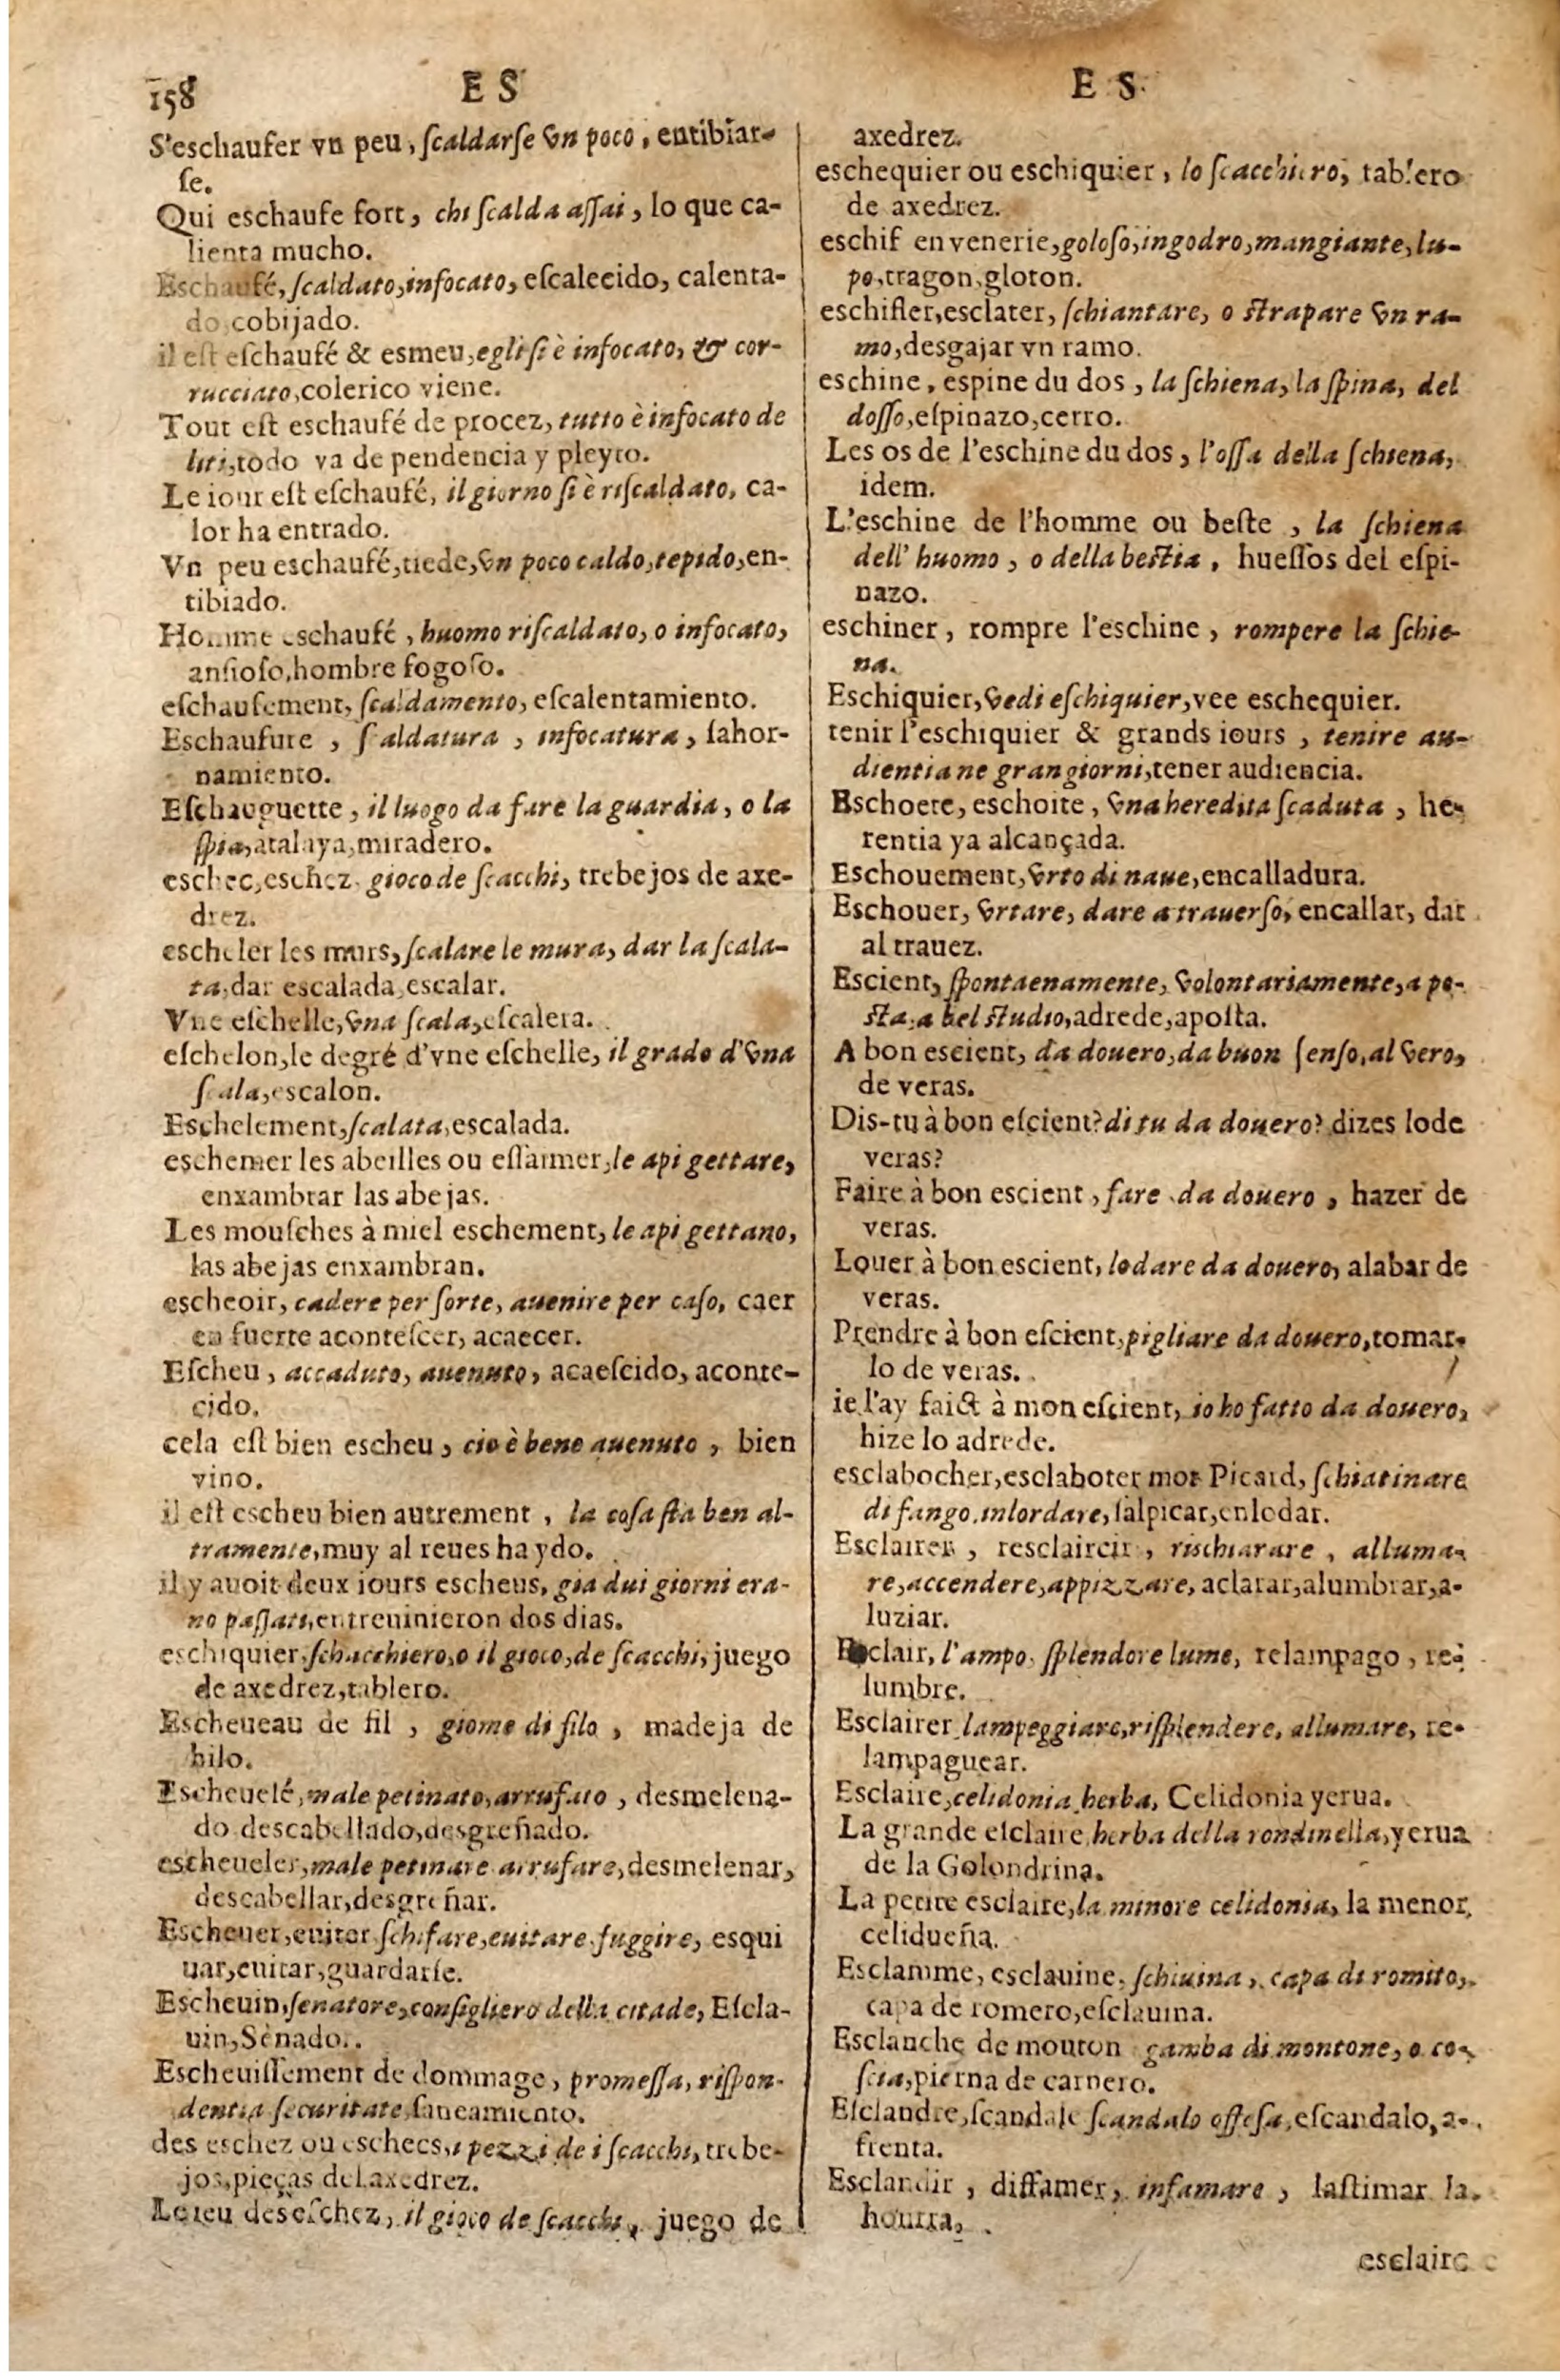 158
E S
S'eschaufer vn peu, ſcaldarſe vn poco, entibiar-
ſe.
Qui eschaufe fort, chi ſcalda aſſai, lo que ca-
lienta mucho.
Eschaufé, ſcaldato, infocato, eſcalecido, calenta-
do, cobijado.
il est eſchaufé & esmeu, egli ſi è infocato, & cor-
rucciato, colerico viene.
Tout eſt eschaufé de procez, tutto è infocato de
liti, todo va de pendencia y pleyto.
Le iour eſt eſchaufé, il giorno ſi è riſcaldato, ca-
lor ha entrado.
Vn peu eschaufé, tiede, vn poco caldo, tepido, en-
tibiado.
Homme eschaufé, huomo riſcaldato, o infocato,
anſioſo, hombre fogoſo.
eſchaufement, ſcaldamento, eſcalentamiento.
Eschaufure, ſcaldatura, infocatura, ſahor-
namiento.
Eſchauguette, il luogo da fare la guardia, o la
ſpia, atalaya, miradero.
eschec, eschez, gioco de ſcacchi, trebejos de axe-
drez.
escheler les murs, ſcalare le mura, dar la ſcala-
ta, dar escalada, escalar.
Vne eſchelle, vna ſcala, eſcalera.
eſchelon, le degré d'vne eſchelle, il grado d'vna
ſcala, escalon.
Eschelement, ſcalata, escalada.
eschemer les abeilles ou eſſaimer, le api gettare,
enxambrar las abejas.
Les mouſches à miel eschement, le api gettano,
las abejas enxambran.
escheoir, cadere per ſorte, auenire per caſo, caer
en fuerte aconteſcer, acaecer.
Eſcheu, accaduto, auenuto, acaeſcido, aconte-
cido.
cela eſt bien escheu, cio è bene auenuto, bien
vino.
il eſt escheu bien autrement, la coſa ſta ben al-
tramente, muy al reues ha ydo.
il y auoit deux iours escheus, gia dui giorni era-
no paſſati, entreuinieron dos dias.
eschiquier, ſchacchiero, o il gioco, de ſcacchi, juego
de axedrez, tablero.
Escheueau de fil, giome di filo, madeja de
hilo.
Escheuelé, male petinato, arrufato, desmelena-
do descabellado, desgreñado.
escheueler, male petinare arrufare, desmelenar,
descabellar, desgreñar.
Escheuer, euiter ſchifare, euitare fuggire, esqui
uar, euitar, guardarſe.
Escheuin, ſenatore, conſigliero della citade, Eſcla-
uin, Senado.
Escheuiſſement de dommage, promeſſa, riſpon-
dentia ſecuritate, ſaneamiento.
des eschez ou eschecs, i pezzi de i ſcacchi, trebe-
jos, pieças del axedrez.
Le ieu des eſchez, il gioco de ſcacchi, juego de
E S
axedrez.
eschequier ou eschiquier, lo ſcacchiero, tablero
de axedrez.
eschif en venerie, goloſo, ingodro, mangiante, lu-
po, tragon, gloton.
eschifler, esclater, ſchiantare, o ſtrapare vn ra-
mo, desgajar vn ramo.
eschine, espine du dos, la ſchiena, la ſpina, del
doſſo, eſpinazo, cerro.
Les os de l'eschine du dos, l'oſſa della ſchiena,
idem.
L'eschine de l'homme ou beſte, la ſchiena
dell' huomo, o della beſtia, hueſſos del eſpi-
nazo.
eschiner, rompre l'eschine, rompere la ſchie-
na.
Eschiquier, vedi eſchiquier, vee eschequier.
tenir l'eschiquier & grands iours, tenire au-
dientia ne gran giorni, tener audiencia.
Eschoete, eschoite, vna heredita ſcaduta, he-
rentia ya alcançada.
Eschouement, vrto di naue, encalladura.
Eschouer, vrtare, dare a trauerſo, encallar, dar
al trauez.
Escient, ſpontaenamente, volontariamente, a po-
ſta, a bel ſtudio, adrede, apoſta.
A bon escient, da douero, da buon ſenſo, al vero,
de veras.
Dis-tu à bon eſcient? di tu da douero? dizes lo de
veras?
Faire à bon escient, fare da douero, hazer de
veras.
Louer à bon escient, lodare da douero, alabar de
veras.
Prendre à bon eſcient, pigliare da douero, tomar-
lo de veras.
ie l'ay faict à mon eſcient, io ho fatto da douero,
hize lo adrede.
esclabocher, esclaboter mot Picard, ſchiatinare
di fango, inlordare, ſalpicar, enlodar.
Esclairer, resclaircir, rischiarare, alluma-
re, accendere, appizzare, aclarar, alumbrar, a-
luziar.
Esclair, l'ampo, ſplendore lume, relampago, re-
lumbre.
Esclairer lampeggiare, riſplendere, allumare, re-
lampaguear.
Esclaire, celidonia herba, Celidonia yerua.
La grande eſclaire, herba della rondinella, yerua
de la Golondrina.
La petite esclaire, la minore celidonia, la menor
celidueña.
Esclamme, esclauine, ſchiuina, capa di romito,
capa de romero, eſclauina.
Esclanche de mouton gamba di montone, o co-
ſcia, pierna de carnero.
Eſclandre, ſcandale ſcandalo offeſa, eſcandalo, a-
frenta.
Esclandir, diffamer, infamare, laſtimar la
honrra,
esclaire